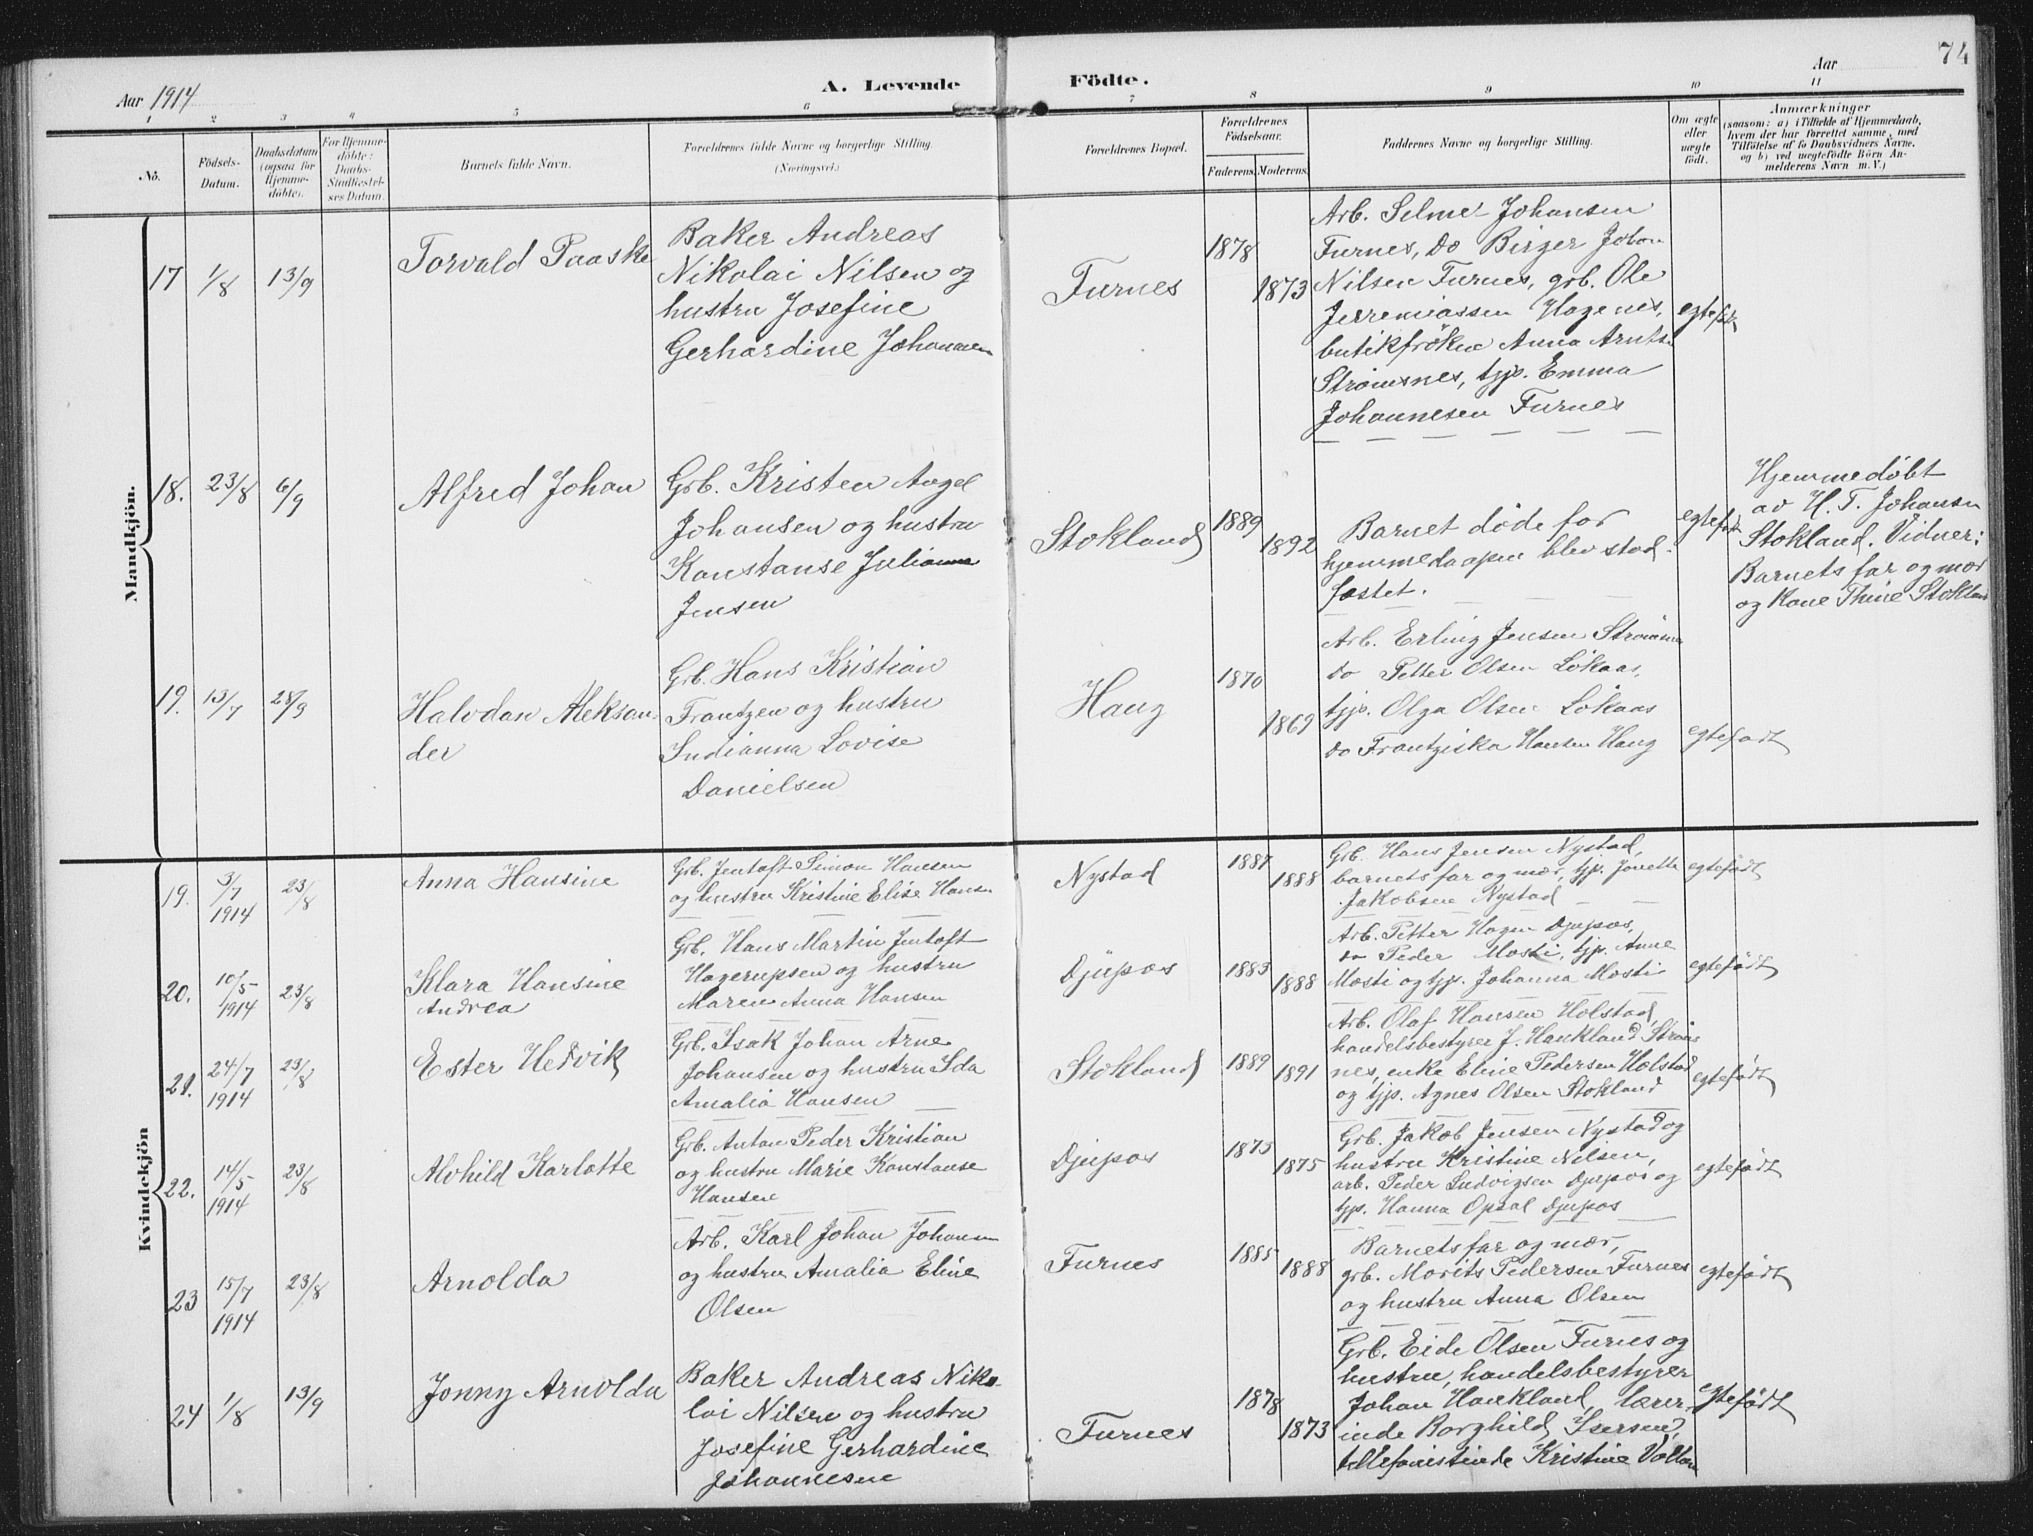 74
Aar 1914
A. Levende
Födte.
Aar
1 2 3 4 5 6 7 8 9 10 11
No.
Födsels-
Datum.
Daabsdatum
(ogsaa for
Hjemme-
döbte).
For Hjemme-
döbte:
Daabs-
Stadfæstel-
ses Datum.
Barnets fulde Navn.
Forældrenes fulde Navne og borgerlige Stilling.
(Næringsvei.)
Forældrenes Bopæl.
Forældrenes
Födselsaar.
Faderens. Moderens.
Faddernes Navne og borgerlige Stilling.
Om ægte
eller
uægte
födt.
Anmærkninger
(saasom: a) i Tilfælde af Hjemmedaab,
hvem der har forrettet samme, med
Tilföielse af to Daabsvidners Navne,
og b) ved uægtefödte Börn An-
melderens Navn m. V.)
Mandkjön.
17
1/8
13/9
Torvald Paaske
Baker Andreas
Nikolai Nilsen og
hustru Josefine
Gerhardine Johannesen
Furnes
1878
1873
Arb. Selmer Johansen
Furnes, do Birger Johan
Nilsen Furnes, grb. Ole
Jerremiassen Hagenes,
butikfröken Anna Arnts.
Strömsnes, tjp. Emma
Johannesen Furnes
egtefödt
18.
23/8
6/9
Alfred Johan
Grb. Kristen Angel
Johansen og hustru
Konstanse Julianna
Jensen
Stokland
1889
1892
Barnet döde för
hjemmedaapen blev stad-
fæstet.
egtefödt
Hjemmedöbt
av H. T. Johansen
Stokland. Vidner:
Barnets far og mor
og Kone Thine Stokland
19.
13/7
28/9
Halvdan Aleksan-
der
Grb. Hans Kristian
Frantzen og hustru
Indianna Lovise
Danielsen
Haug
1870
1869
Arb. Erling Jensen Strömsnes
do Petter Olsen Lökaas,
tjp. Olga Olsen Lökaas
do Frantziska Hansen Haug
egtefödt
Kvindekjön
19.
3/7
1914
23/8
Anna Hansine
Grb. Jentoft Simon Hansen
og hustru Kristine Elise Hansen
Nystad
1887
1888
Grb. Hans Jensen Nystad,
barnets far og mor, tjp. Jonette
Jakobsen Nystad
egtefödt
20.
10/5
1914
23/8
Klara Hansine
Andrea
Grb. Hans Martin Jentoft
Hagerupsen og hustru
Maren Anna Hansen
Djupos
1883
1888
Arb. Petter Hagen Djupos,
do Peder Mosti, tjp. Anne
Mosti og tjp. Johanna Mosti
egtefödt
21.
24/7
1914
23/8
Ester Hedvik
Grb. Isak Johan Arne
Johansen og hustru Ida
Amalia Hansen
Stokland
1889
1891
Arb. Olaf Hansen Holstad,
handelsbestyrer J. Haukland Ströms
nes, enke Eline Pedersen Holstad
og tjp. Agnes Olsen Stokland
egtefödt
22.
14/5
1914
23/8
Alvhild Karlotte
Grb. Anton Peder Kristian
og hustru Marie Konstanse
Hansen
Djupos
1873
1875
Grb. Jakob Jensen Nystad og
hustru Kristine Nilsen,
arb. Peder Ludvigsen Djupos og
tjp. Hanna Opsal Djupos
egtefödt
23
15/7
1914
23/8
Arnolda
Arb. Karl Johan Johansen
og hustru Amalia Eline
Olsen
Furnes
1885
1888
Barnets far og mor,
grb. Morits Pedersen Furnes
og hustru Anna Olsen
egtefödt
24
1/8
13/9
Jonny Arnolda
Baker Andreas Niko-
lai Nilsen og hustru
Josefine Gerhardine
Johannesen
Furnes
1878
1873
Grb. Eide Olsen Furnes og
hustru, handelsbestyrer
Johan Haukland, lærer-
inde Borghild Isersen,
telefonistinde Kristine Vollan
egtefödt